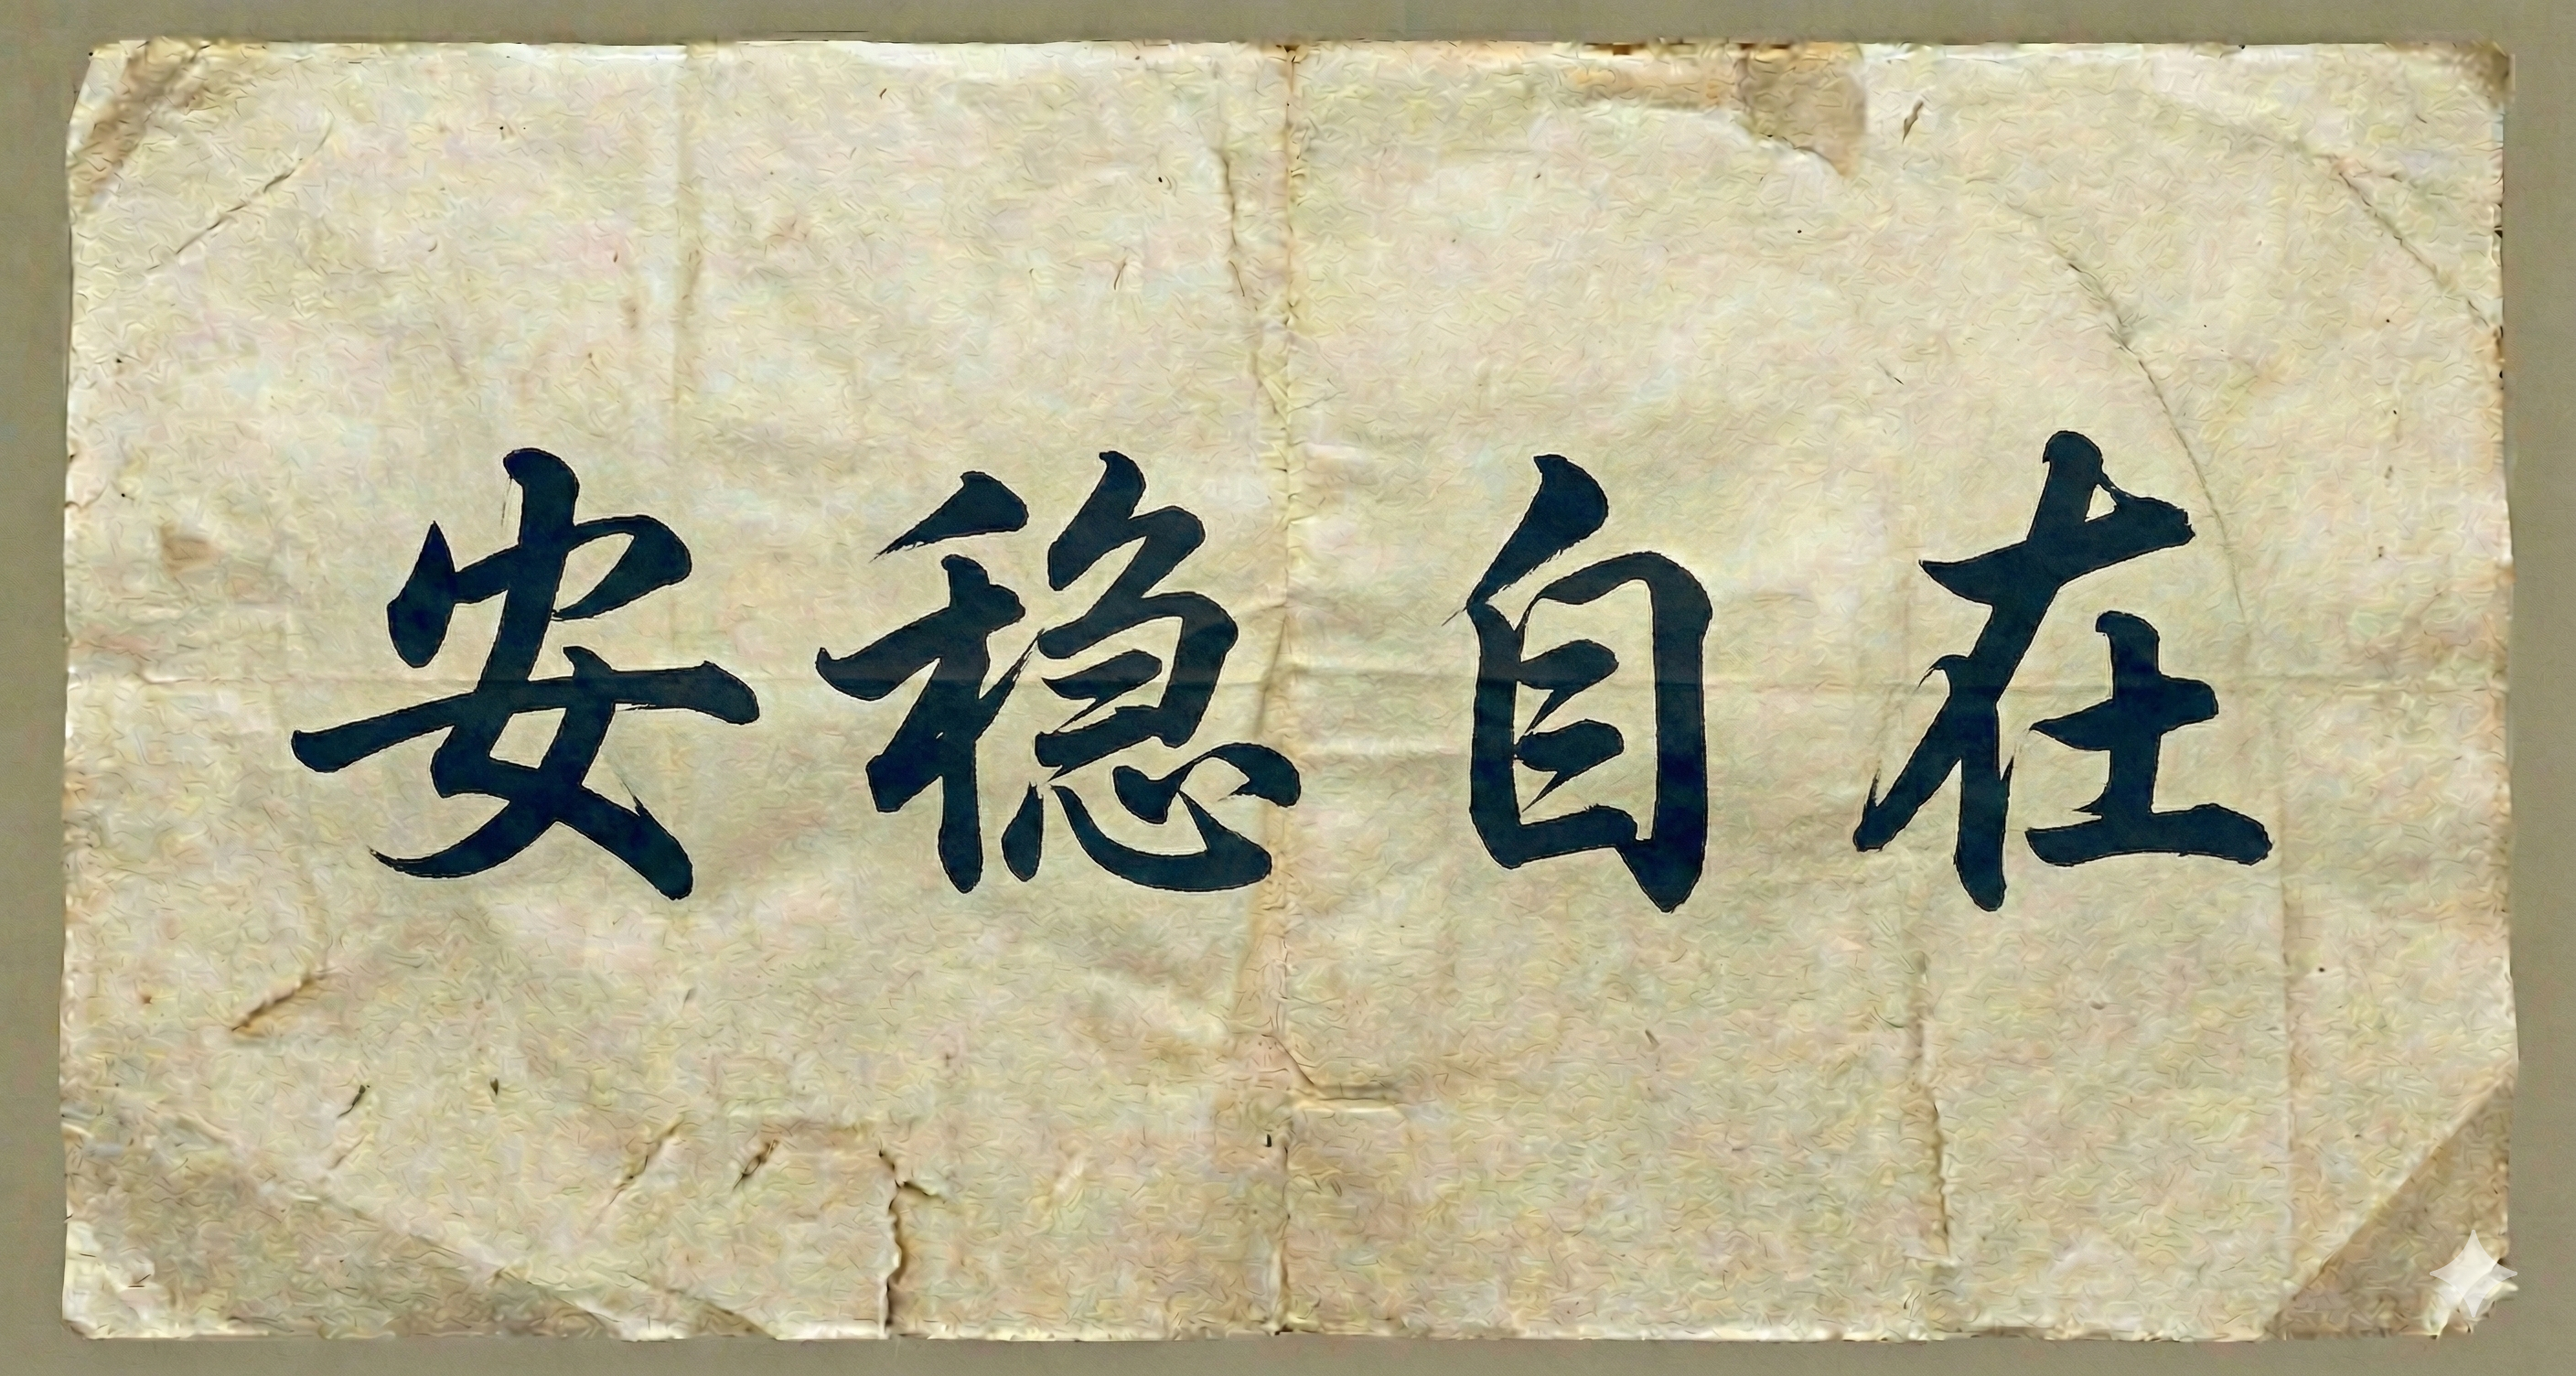 安稳自在